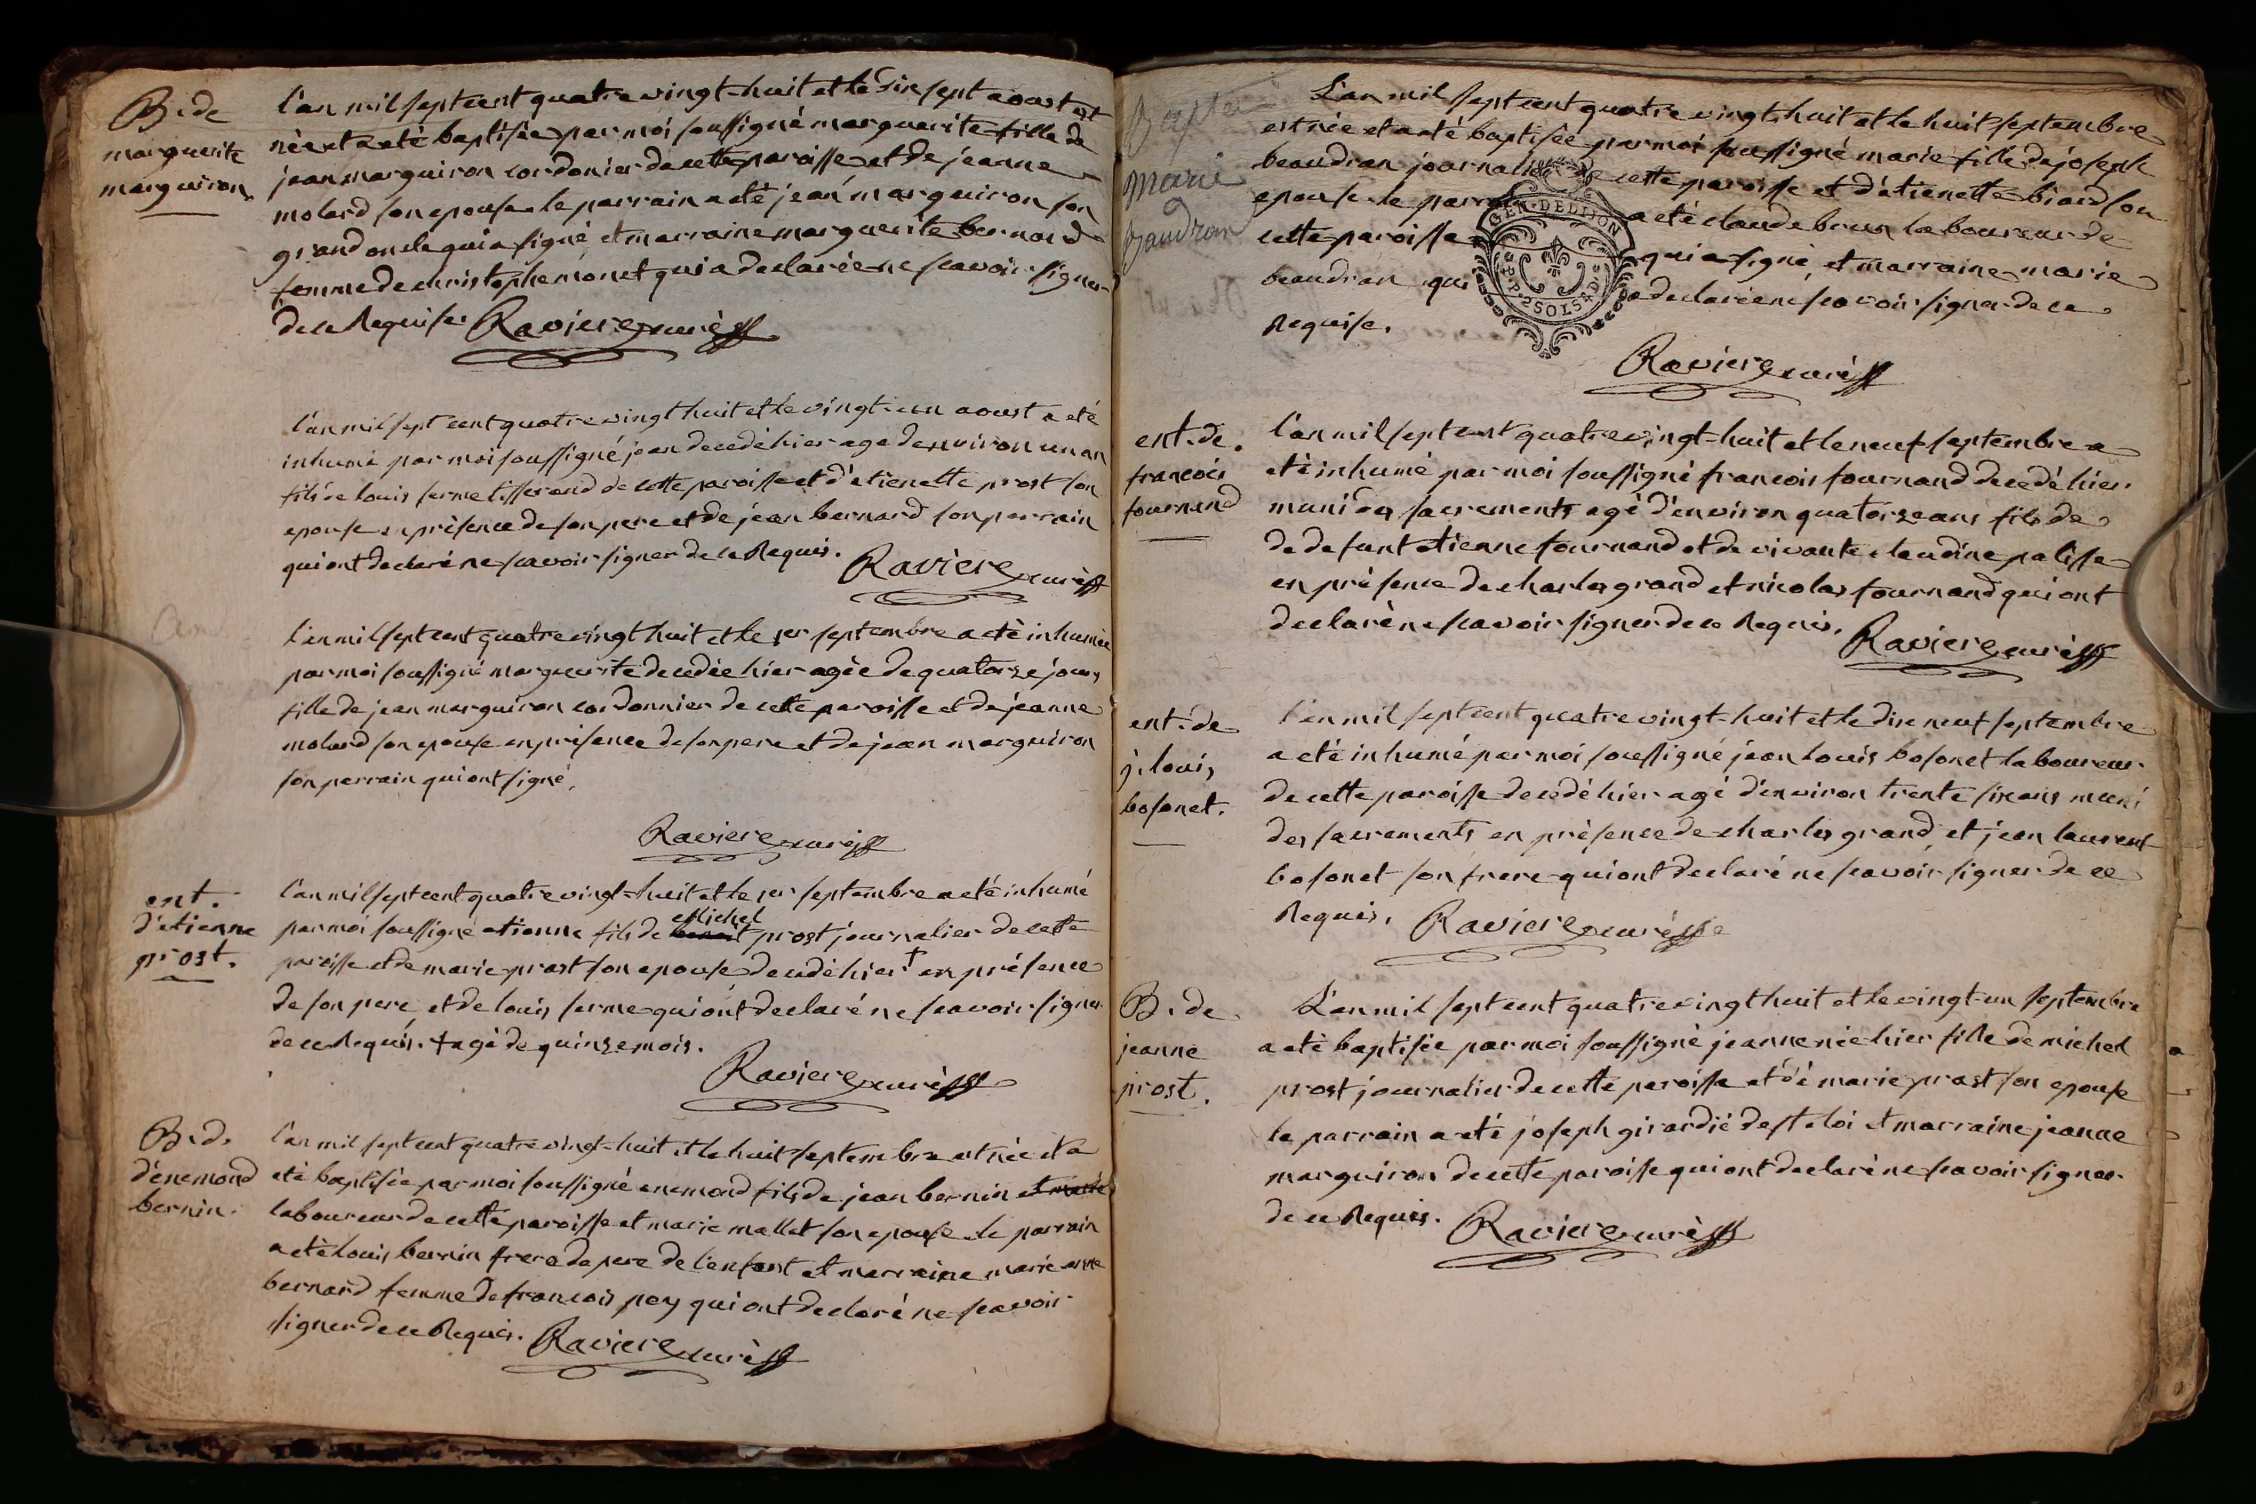 B. de
marguerite
marguiron
l'an mil sept cent quatre vingt-huit et le dix sept aoust est
née et a eté baptisée par moi soussigné marguerite fille de
jean marguiron cordonier de cette paroisse et de jeanne
molard son epouse le parrain a eté jean marguiron son
grand oncle qui a signé et marraine marguerite bernard
femme de christophe monet qui a declarée ne scavoir signer
de ce Requise Raviere curé
l'an mil sept cent quatre vingt huit et le vingt-un aoust a eté
inhumé par moi soussigné jean decedé hier age d'environ un an
fils de louis ferme tisserand de cette paroisse et d'etienette prost son
epouse en présence de son pere et de jean bernard son parrain
qui ont declaré ne scavoir signer de ce Requis. Raviere curé
l'an mil sept cent quatre vingt huit et le 1er septembre a eté inhumée
par moi soussigné marguerite decedée hier agée de quatorze jours
fille de jean marguiron cordonnier de cette paroisse et de jeanne
molard son epouse en présence de son pere et de jean marguiron
son perrain qui ont signé.
Raviere curé
ent.
d'etienne
prost.
l'an mil sept cent quatre vingt-huit et le 1er septembre a eté inhumé
par moi soussigné etienne fils de Michel prost journalier de cette
paroisse et de marie prast son epouse decedé hier † en présence
de son pere et de louis ferme qui ont declaré ne scavoir signer
de ce Requis. † agé de quinze mois.
Raviere curé
B. d.
d'enemond
bernin.
l'an mil sept cent quatre vingt-huit et le huit septembre est née et a
eté baptisée par moi soussigné enemond fils de jean bernin et marie
laboureur de cette paroisse et marie mallet son epouse le parrain
a eté louis bernin frere de pere de l'enfant et marraine marie anne
bernard femme de francois pey qui ont declaré ne scavoir
signer de ce Requis. Raviere curé
Baptei
Marie
Baudran
L'an mil sept cent quatre vingt huit et le huit septembre
est née et a eté baptisée par moi soussigné marie fille de joseph
beaudran journalier de cette paroisse et d'etienette biard son
epouse le parrain a eté claude brun laboureur de
cette paroisse qui a signé et marraine marie
beaudran qui a declarée ne scavoir signer de ce
Requise.
GEN. DE DIJON
Raviere curé
ent. de
francois
fournand
l'an mil sept cent quatre vingt-huit et le neuf septembre a
eté inhumé par moi soussigné francois fournand decedé hier
muni des sacrements agé d'environ quatorze ans fils de
de defunt etienne fournand et de vivante claudine palisse
en présence de charles grand et nicolas fournand qui ont
declaré ne scavoir signer de ce Requis. Raviere curé
ent. de
j. louis
bosonet.
l'an mil sept cent quatre vingt-huit et le dix neuf septembre
a eté inhumé par moi soussigné jean louis bosonet laboureur
de cette paroisse decedé hier agé d'environ trente six ans muni
des sacrements en présence de charles grand et jean laurent
bosonet son frere qui ont declaré ne scavoir signer de ce
Requis. Raviere curé
B. de
jeanne
prost.
L'an mil sept cent quatre vingt huit et le vingt-un septembre
a eté baptisée par moi soussigné jeanne née hier fille de michel
prost journalier de cette paroisse et de marie prast son epouse
le parrain a eté joseph girardié de st eloi et marraine jeanne
marguiron de cette paroisse qui ont declaré ne scavoir signer
de ce Requis. Raviere curé